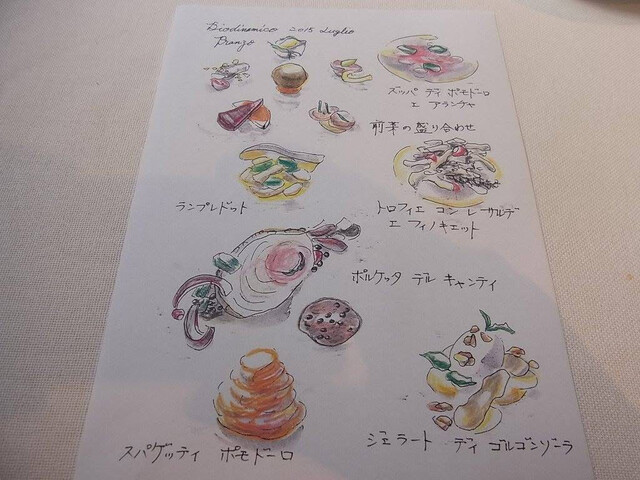 Biodinamico 2015 Luglio
Pranzo
ズッパ ディ ポモドーロ
エ アランチャ
前菜の盛り合わせ
ランプレドット
トロフィエ コン レ サルデ
エ フィノキエット
ポルケッタ デル キャンティ
スパゲッティ ポモドーロ
ジェラート ディ ゴルゴンゾーラ